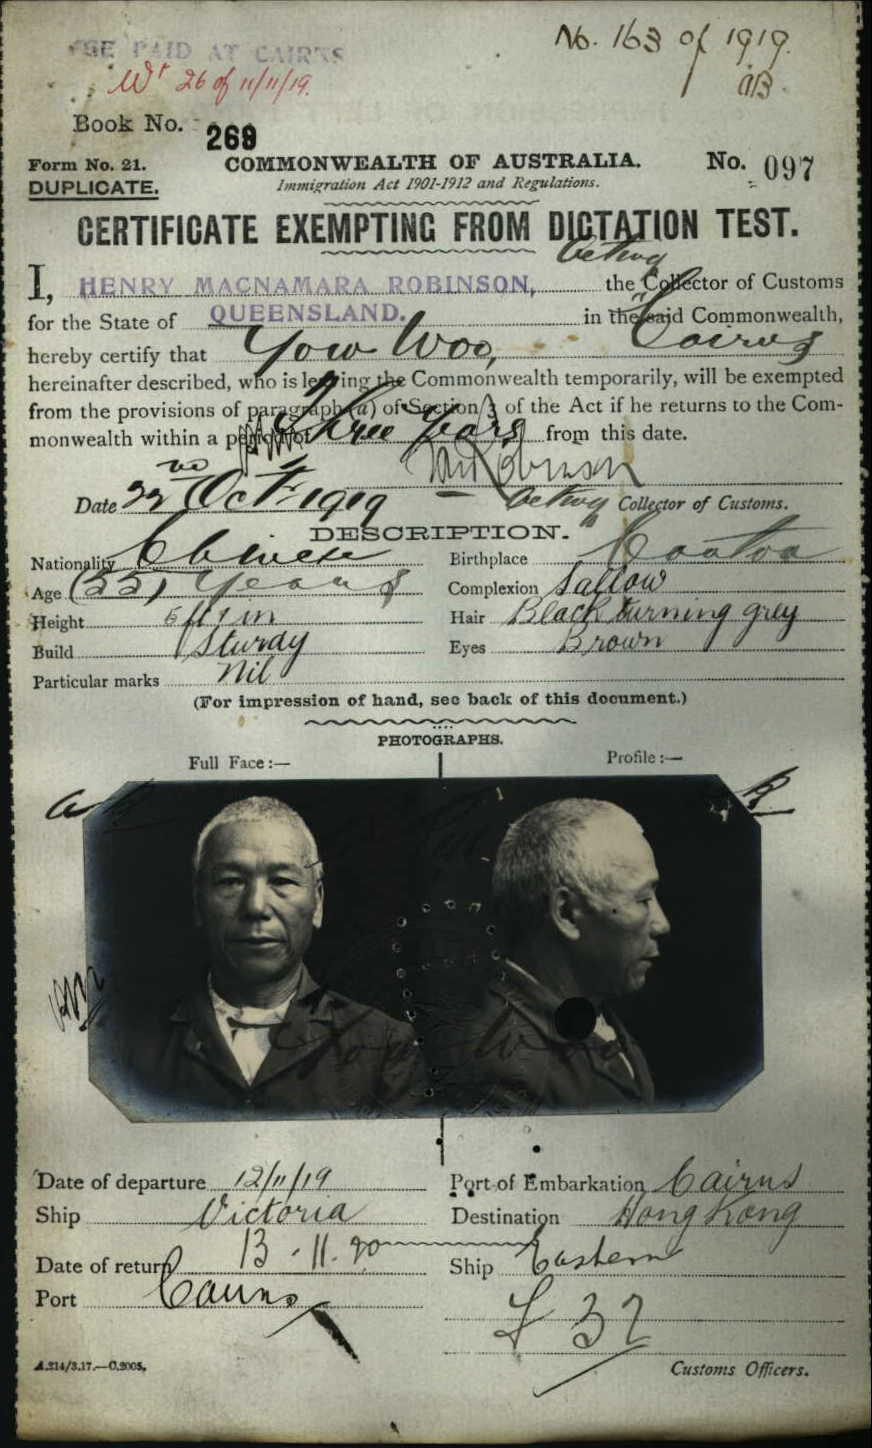 FEE PAID AT CAIRNS
No. 163 of 1919.
26 of 11/11/19.
Book No. 269
Form No. 21.
COMMONWEALTH OF AUSTRALIA.
No. 097
DUPLICATE.
Immigration Act 1901-1912 and Regulations.
CERTIFICATE EXEMPTING FROM DICTATION TEST.
Acting
I, HENRY MACNAMARA ROBINSON, the Collector of Customs
for the State of QUEENSLAND. in the said Commonwealth,
hereby certify that Yow Woo, Cairns
hereinafter described, who is leaving the Commonwealth temporarily, will be exempted
from the provisions of paragraph (a) of Section 3 of the Act if he returns to the Com-
monwealth within a period of Three Years from this date.
Robinson
Date 22nd Oct. 1919 Acting Collector of Customs.
DESCRIPTION.
Nationality Chinese
Birthplace Canton
Age (55) Years
Complexion Sallow
Height 5 ft 1 in
Hair Black turning grey
Build Sturdy
Eyes Brown
Particular marks Nil
(For impression of hand, see back of this document.)
PHOTOGRAPHS.
Full Face :—
Profile :—
Yow Woo
Date of departure 12/11/19
Port of Embarkation Cairns
Ship Victoria
Destination Hong Kong
Date of return 13.11.20
Ship Eastern
Port Cairns
37
A.214/3.17.—C.2005.
Customs Officers.